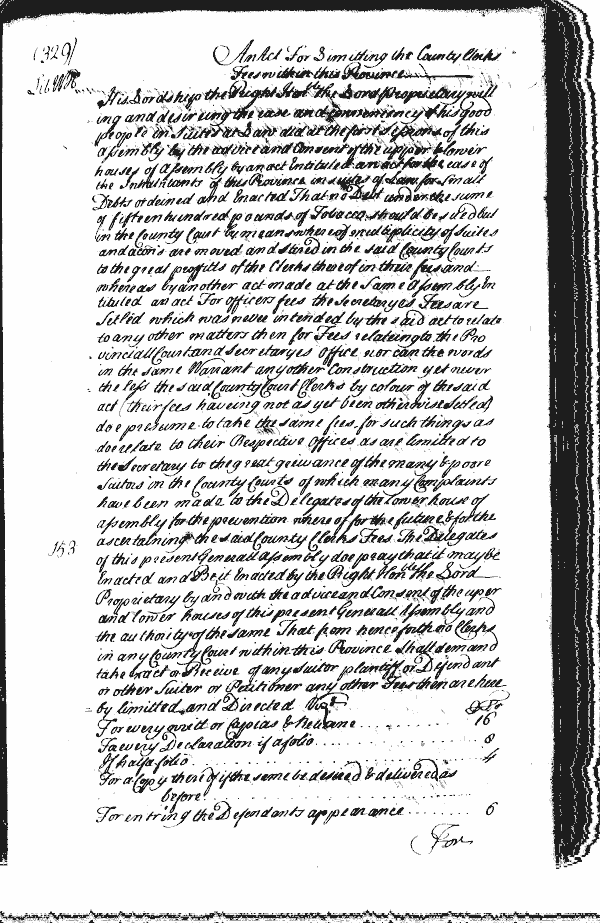 (329)
An Act For Limitting the County Clerks
Fees within this Province
His Lordship the Right Honble the Lord Proprietary will
ing and desireing the ease and conveniency of his good
people in Suites at Law did at the first Sessions of this
assembly by the advice and Consent of the upper & lower
houses of Assembly by an act Entituled an act for the ease of
the Inhabitants of this Province in suites of Law for Small
Debts ordeined and Enacted That no Debt under the sume
of fifteen hundred pounds of Tobacco should be sued but
in the County Court by means whereof multiplicity of Suites
and accons are moved and stored in the said County Courts
to the great proffitts of the Clerks thereof in their fees and
whereas by another act made at the Same Assembly En
tituled an act For officers fees the Secretaryes Fees are
Setled which was never intended by the said act to relate
to any other matters then for Fees relateing to the Pro
vinciall Court and Secretaryes office nor can the words
in the same Warrant any other Construction yet never
the less the said County Court Clerks by colour of the said
act (their fees haveing not as yet been otherwise Setled)
doe presume to take the same fees for such things as
doe relate to their Respective offices as are limited to
the Secretary to the great greivance of the many & poore
Suitors in the County Courts of which many Complaints
have been made to the Delegates of the lower house of
assembly for the prevention whereof for the future & for the
ascertaining the said County Clerks Fees The Delegates
153
of this present Generall Assembly doe pray that it may be
Enacted and Be it Enacted by the Right Honble the Lord
Proprietary by and with the advice and Consent of the uper
and lower houses of this present Generall Assembly and
the authority of the same That from henceforth no Clerks
in any County Court within this Province Shall demand
take exact or Receive of any Suitor plantiff or Defendant
or other Suiter or Petitioner any other Fees then are here
by limited and Directed Vizt
For every writt or capias & Retorne 16
To every Declaration if a folio 8
If halfe folio 4
For a Copy thereof if the same be desired & delivered as
before
For entring the Defendants appearance 6
For